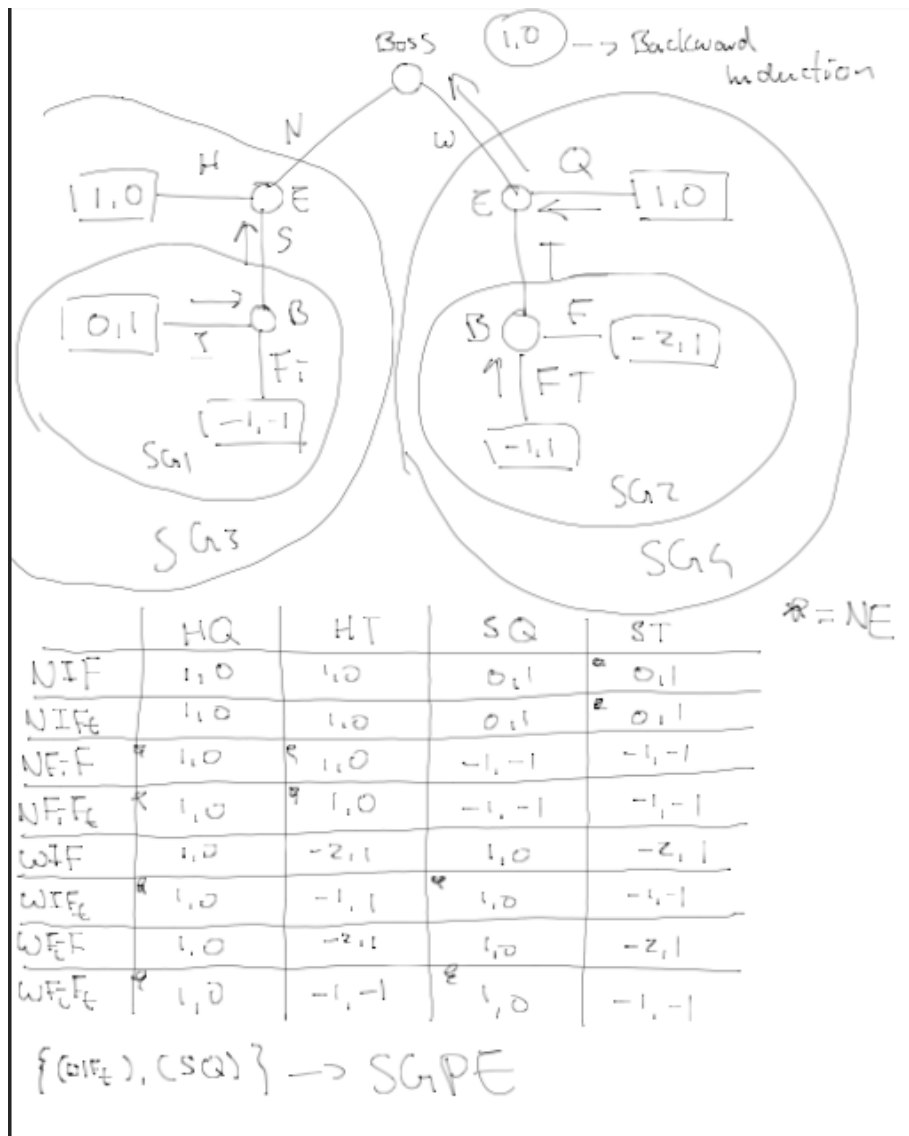 Boss 1,0 -> Backward
Induction
N W
H Q
1,0 E E 1,0
S T
0,1 B B F -2,1
I Fi FT
-1,-1 -1,1
SG1 SG2
SG3 SG4
HQ HT SQ ST * = NE
NIF 1,0 1,0 0,1 * 0,1
NIFt 1,0 1,0 0,1 * 0,1
NFiF * 1,0 * 1,0 -1,-1 -1,-1
NFiFt * 1,0 * 1,0 -1,-1 -1,-1
WIF 1,0 -2,1 1,0 -2,1
WIFt * 1,0 -1,1 * 1,0 -1,-1
WFiF 1,0 -2,1 1,0 -2,1
WFiFt * 1,0 -1,-1 * 1,0 -1,-1
{(WIFt), (SQ)} -> SGPE